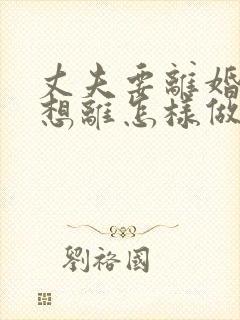 丈夫要離婚
想離怎樣做
劉裕國